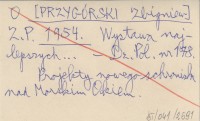 O [PRZYGÓRSKI Zbigniew]
Z.P. 1954. Wystaw naj-
lepszych... - Dz. Pol. nr 178.
Projekty nowego schroniska
nad Morskim Okiem.